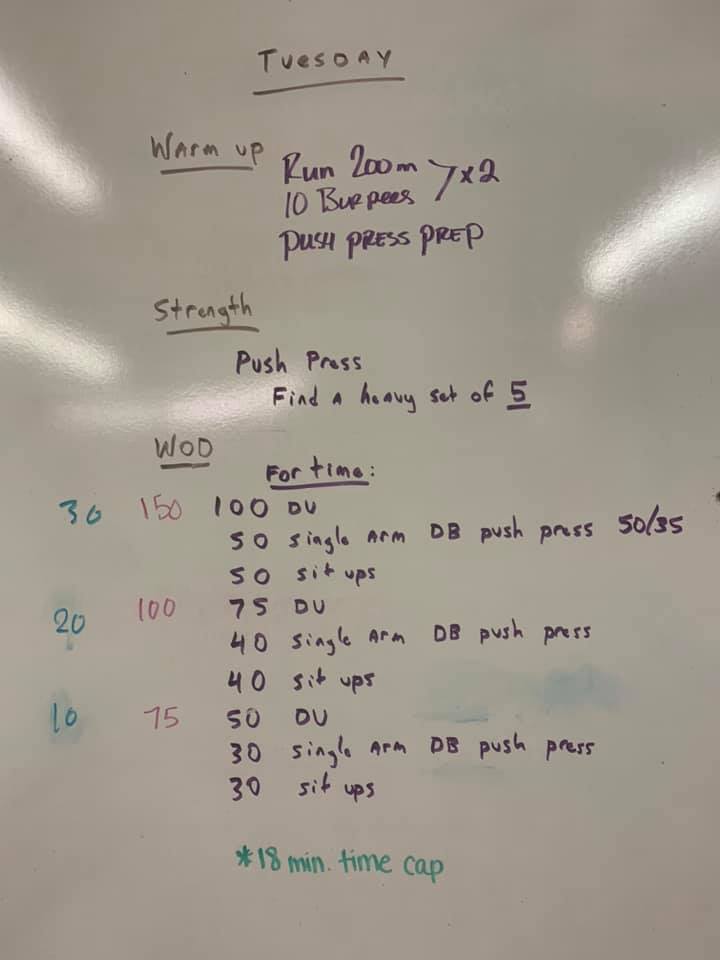 TUESDAY
Warm up
Run 200m
10 Burpees >x2
PUSH PRESS PREP
Strength
Push Press
Find a heavy set of 5
WOD
For time:
30 150 100 DU
50 single Arm DB push press 50/35
50 sit ups
20 100 75 DU
40 single Arm DB push press
40 sit ups
10 75 50 DU
30 single Arm DB push press
30 sit ups
*18 min. time cap